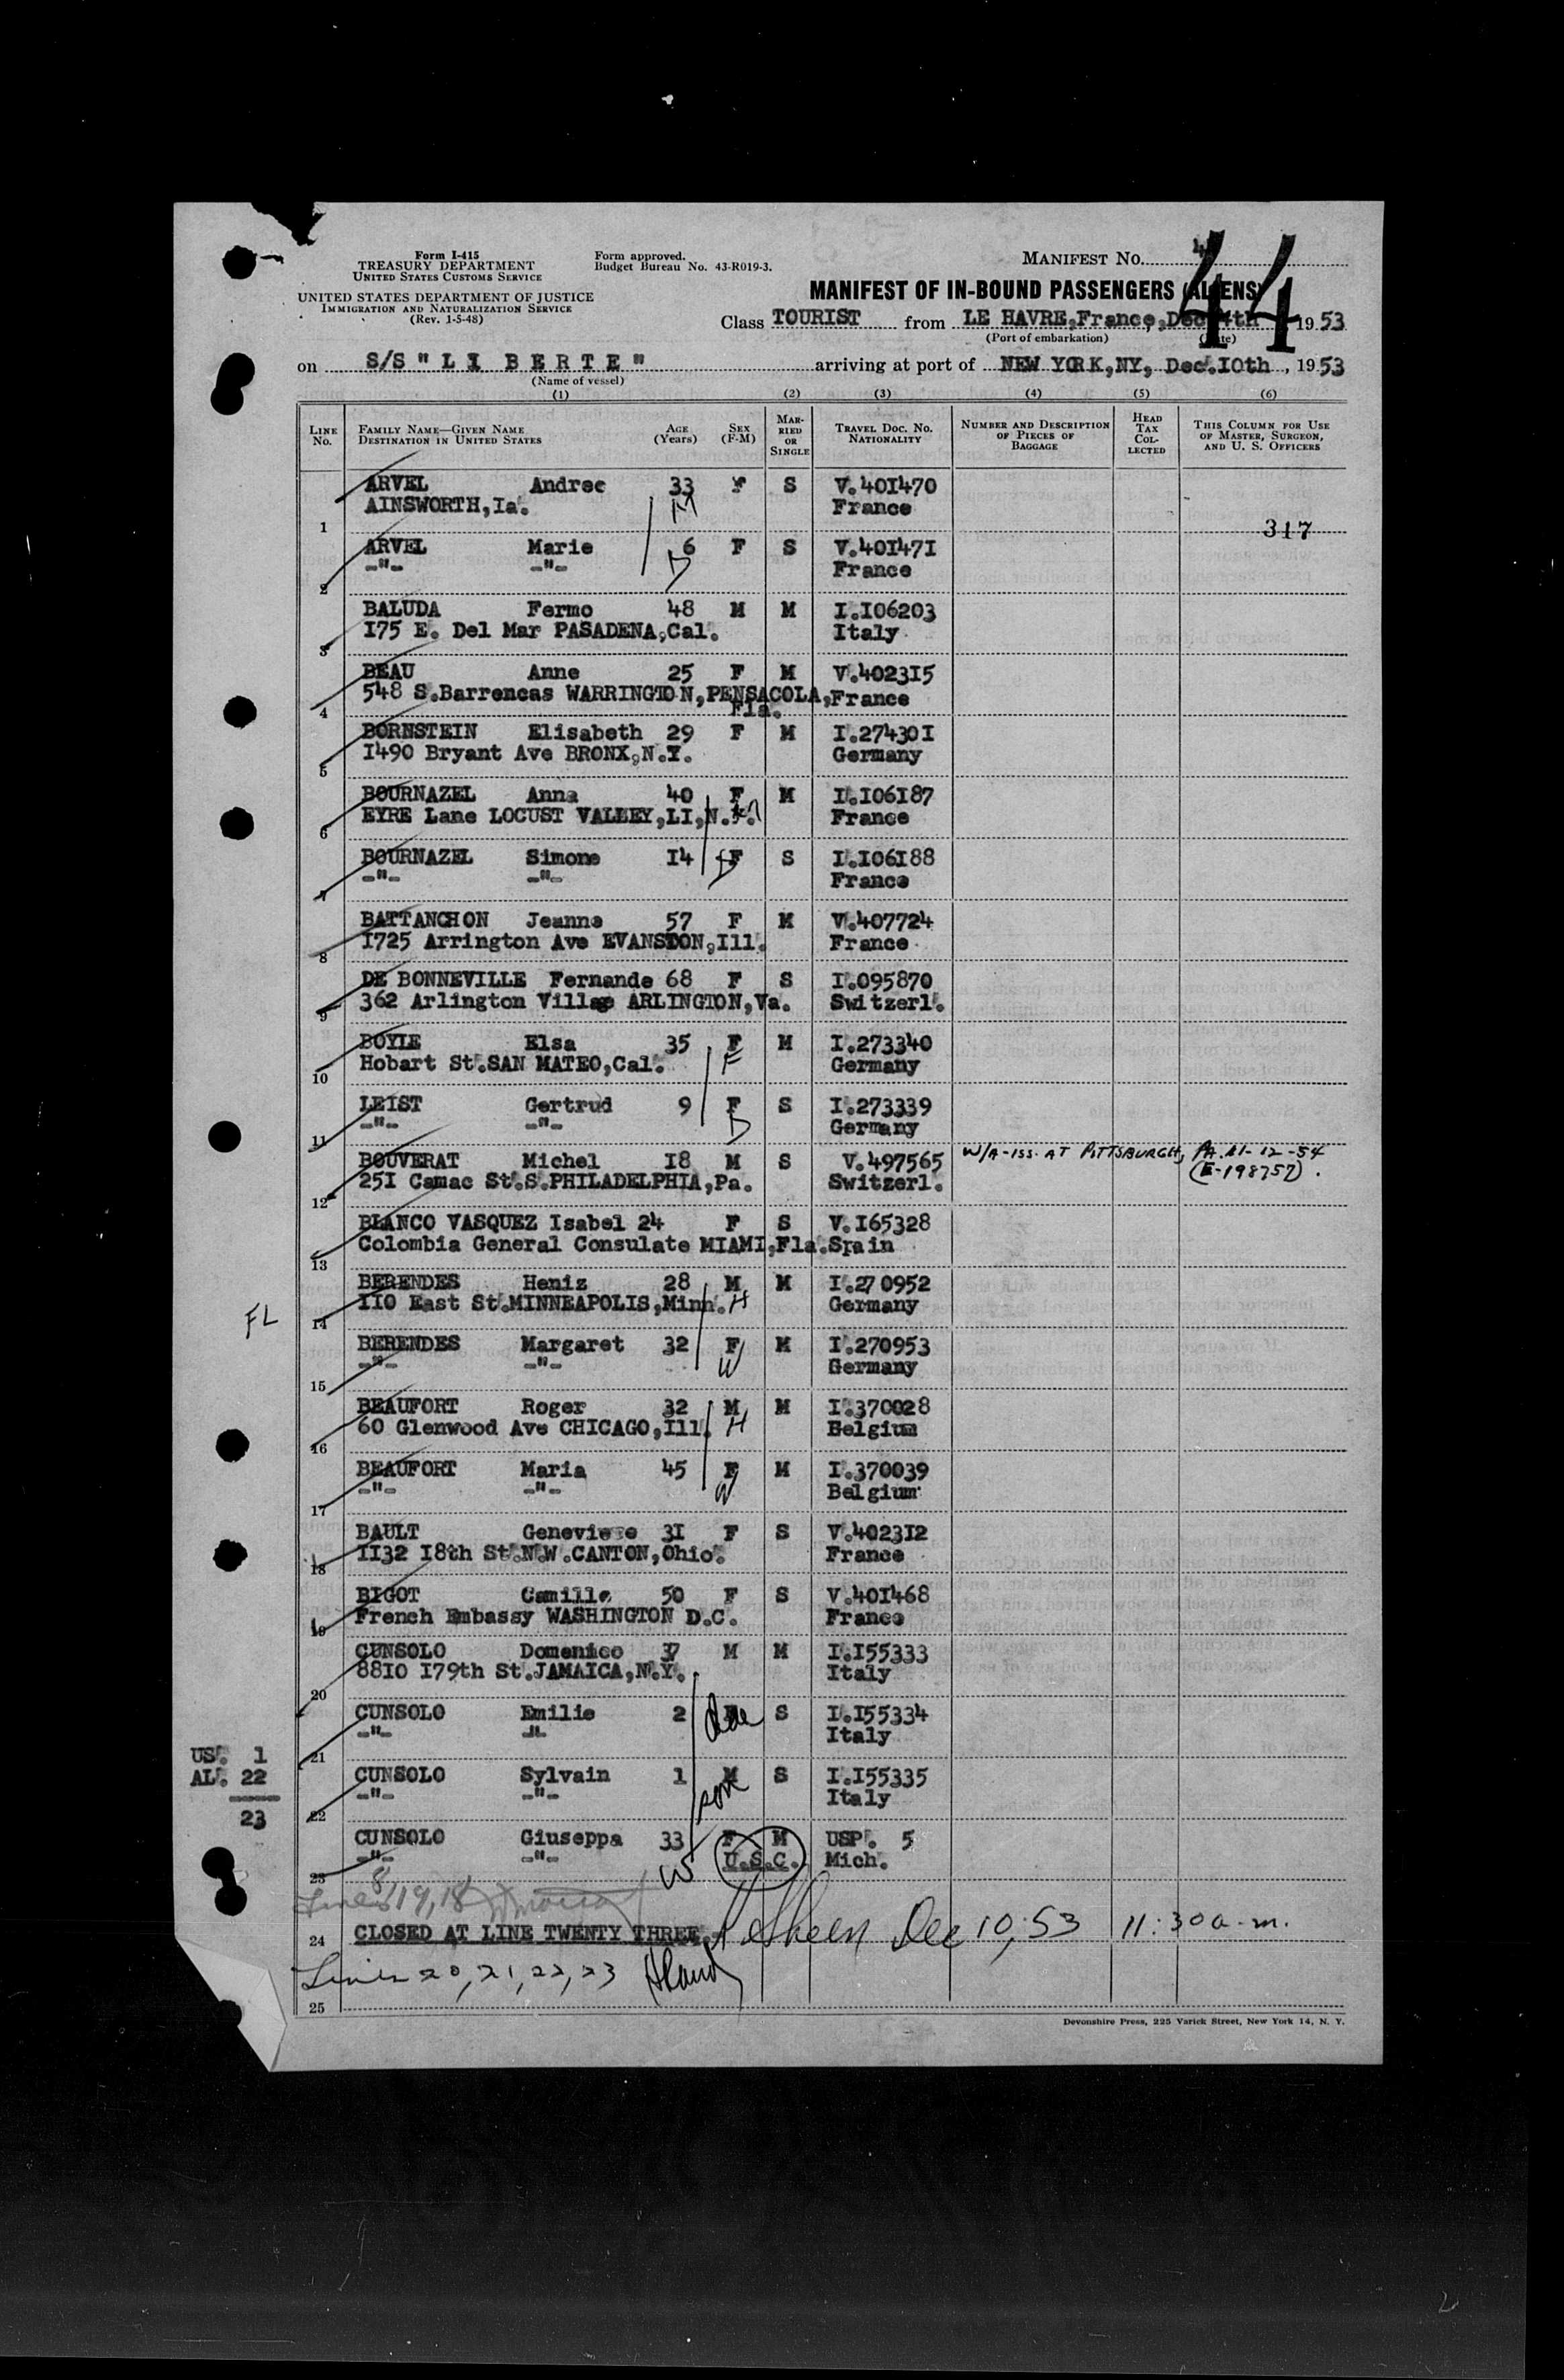 Form I-415
TREASURY DEPARTMENT
UNITED STATES CUSTOMS SERVICE
UNITED STATES DEPARTMENT OF JUSTICE
IMMIGRATION AND NATURALIZATION SERVICE
(Rev. 1-5-48)
Form approved.
Budget Bureau No. 43-R019-3.
MANIFEST No. 44
MANIFEST OF IN-BOUND PASSENGERS (ALIENS)
Class TOURIST from LE HAVRE,France, Dec 4th 1953
(Port of embarkation) (Date)
on S/S "LIBERTE" arriving at port of NEW YORK,NY, Dec.10th, 1953
(Name of vessel)
(1) (2) (3) (4) (5) (6)
LINE No. FAMILY NAME—GIVEN NAME DESTINATION IN UNITED STATES AGE (Years) SEX (F-M) MARRIED OR SINGLE TRAVEL DOC. NO. NATIONALITY NUMBER AND DESCRIPTION OF PIECES OF BAGGAGE HEAD TAX COLLECTED THIS COLUMN FOR USE OF MASTER, SURGEON, AND U. S. OFFICERS
ARVEL Andree 33 F S V.401470
AINSWORTH,Ia. M France
1 317
ARVEL Marie 6 F S V.401471
-"- -"- D France
2
BALUDA Fermo 48 M M I.106203
175 E. Del Mar PASADENA,Cal. Italy
3
BEAU Anne 25 F M V.402315
548 S.Barrencas WARRINGTON,PENSACOLA, France
4 Fla.
BORNSTEIN Elisabeth 29 F M I.274301
1490 Bryant Ave BRONX,N.Y. Germany
5
BOURNAZEL Anna 40 F M I.106187
EYRE Lane LOCUST VALLEY,LI,N.Y. M France
6
BOURNAZEL Simone 14 F S I.106188
-"- -"- D France
7
BATTANCHON Jeanne 57 F M V.407724
1725 Arrington Ave EVANSTON,Ill. France
8
DE BONNEVILLE Fernande 68 F S I.095870
362 Arlington Village ARLINGTON,Va. Switzerl.
9
BOYLE Elsa 35 F M I.273340
Hobart St.SAN MATEO,Cal. F Germany
10
LEIST Gertrud 9 F S I.273339
-"- -"- D Germany
11
BOUVERAT Michel 18 M S V.497565 W/A-ISS. AT PITTSBURGH, PA. 11-12-54
251 Camac St.S.PHILADELPHIA,Pa. Switzerl. (E-198757).
12
BLANCO VASQUEZ Isabel 24 F S V.165328
Colombia General Consulate MIAMI,Fla. Spain
13
BERENDES Heniz 28 M M I.270952
110 East St.MINNEAPOLIS,Minn. H Germany
FL 14
BERENDES Margaret 32 F M I.270953
-"- -"- W Germany
15
BEAUFORT Roger 32 M M I.370028
60 Glenwood Ave CHICAGO,Ill. H Belgium
16
BEAUFORT Maria 45 F M I.370039
-"- -"- W Belgium
17
BAULT Genevieve 31 F S V.402312
1132 18th St.N.W.CANTON,Ohio. France
18
BIGOT Camille 50 F S V.401468
French Embassy WASHINGTON D.C. France
19
CUNSOLO Domenico 37 M M I.155333
8810 179th St.JAMAICA,N.Y. Italy
20
CUNSOLO Emilie 2 S I.155334
-"- -"- Italy
21
CUNSOLO Sylvain 1 M S I.155335
-"- -"- son Italy
22
CUNSOLO Giuseppa 33 F M USP. 5
-"- -"- W U.S.C. Mich.
23
US. 1
AL. 22
23
Lines 8, 19, 18
24 CLOSED AT LINE TWENTY THREE. Dec 10, 53 11:30 a.m.
Lines 20, 21, 22, 23
25
Devonshire Press, 225 Varick Street, New York 14, N. Y.